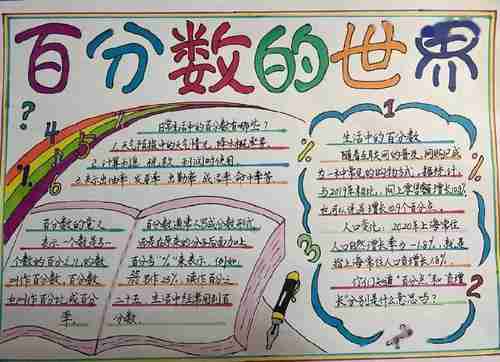 百分数的世界
?
%
4
5
6
8
日常生活中的百分数有哪些?
1.天气预报中的天气情况,降水概率等
2.计算折扣、税收、利润的使用。
3.表示出油率 成活率 出勤率 成活率 命中率等
百分数的意义
表示一个数是另一
个数的百分之几的数
叫作百分数,百分数
也叫作百分比或百分
率
百分数通常不写成分数形式
还是在原来的分子后面加上
百分号“%”来表示,例如,
写作25%,读作百分之
二十五,生活中经常用到百
分数。
1
生活中的百分数
随着互联网的普及,网购已成
为一本中常见的购物方式,据统计,
与2019年相比,网上零售额增长
也可以说是增长10.9个百分点。
人口变化:2020年上海常住
人口自然增长率为-1.8%,就是
指上海常住人口
你们知道“百分点”和“负增
长”分别是什么意思吗?
%
3
%
2